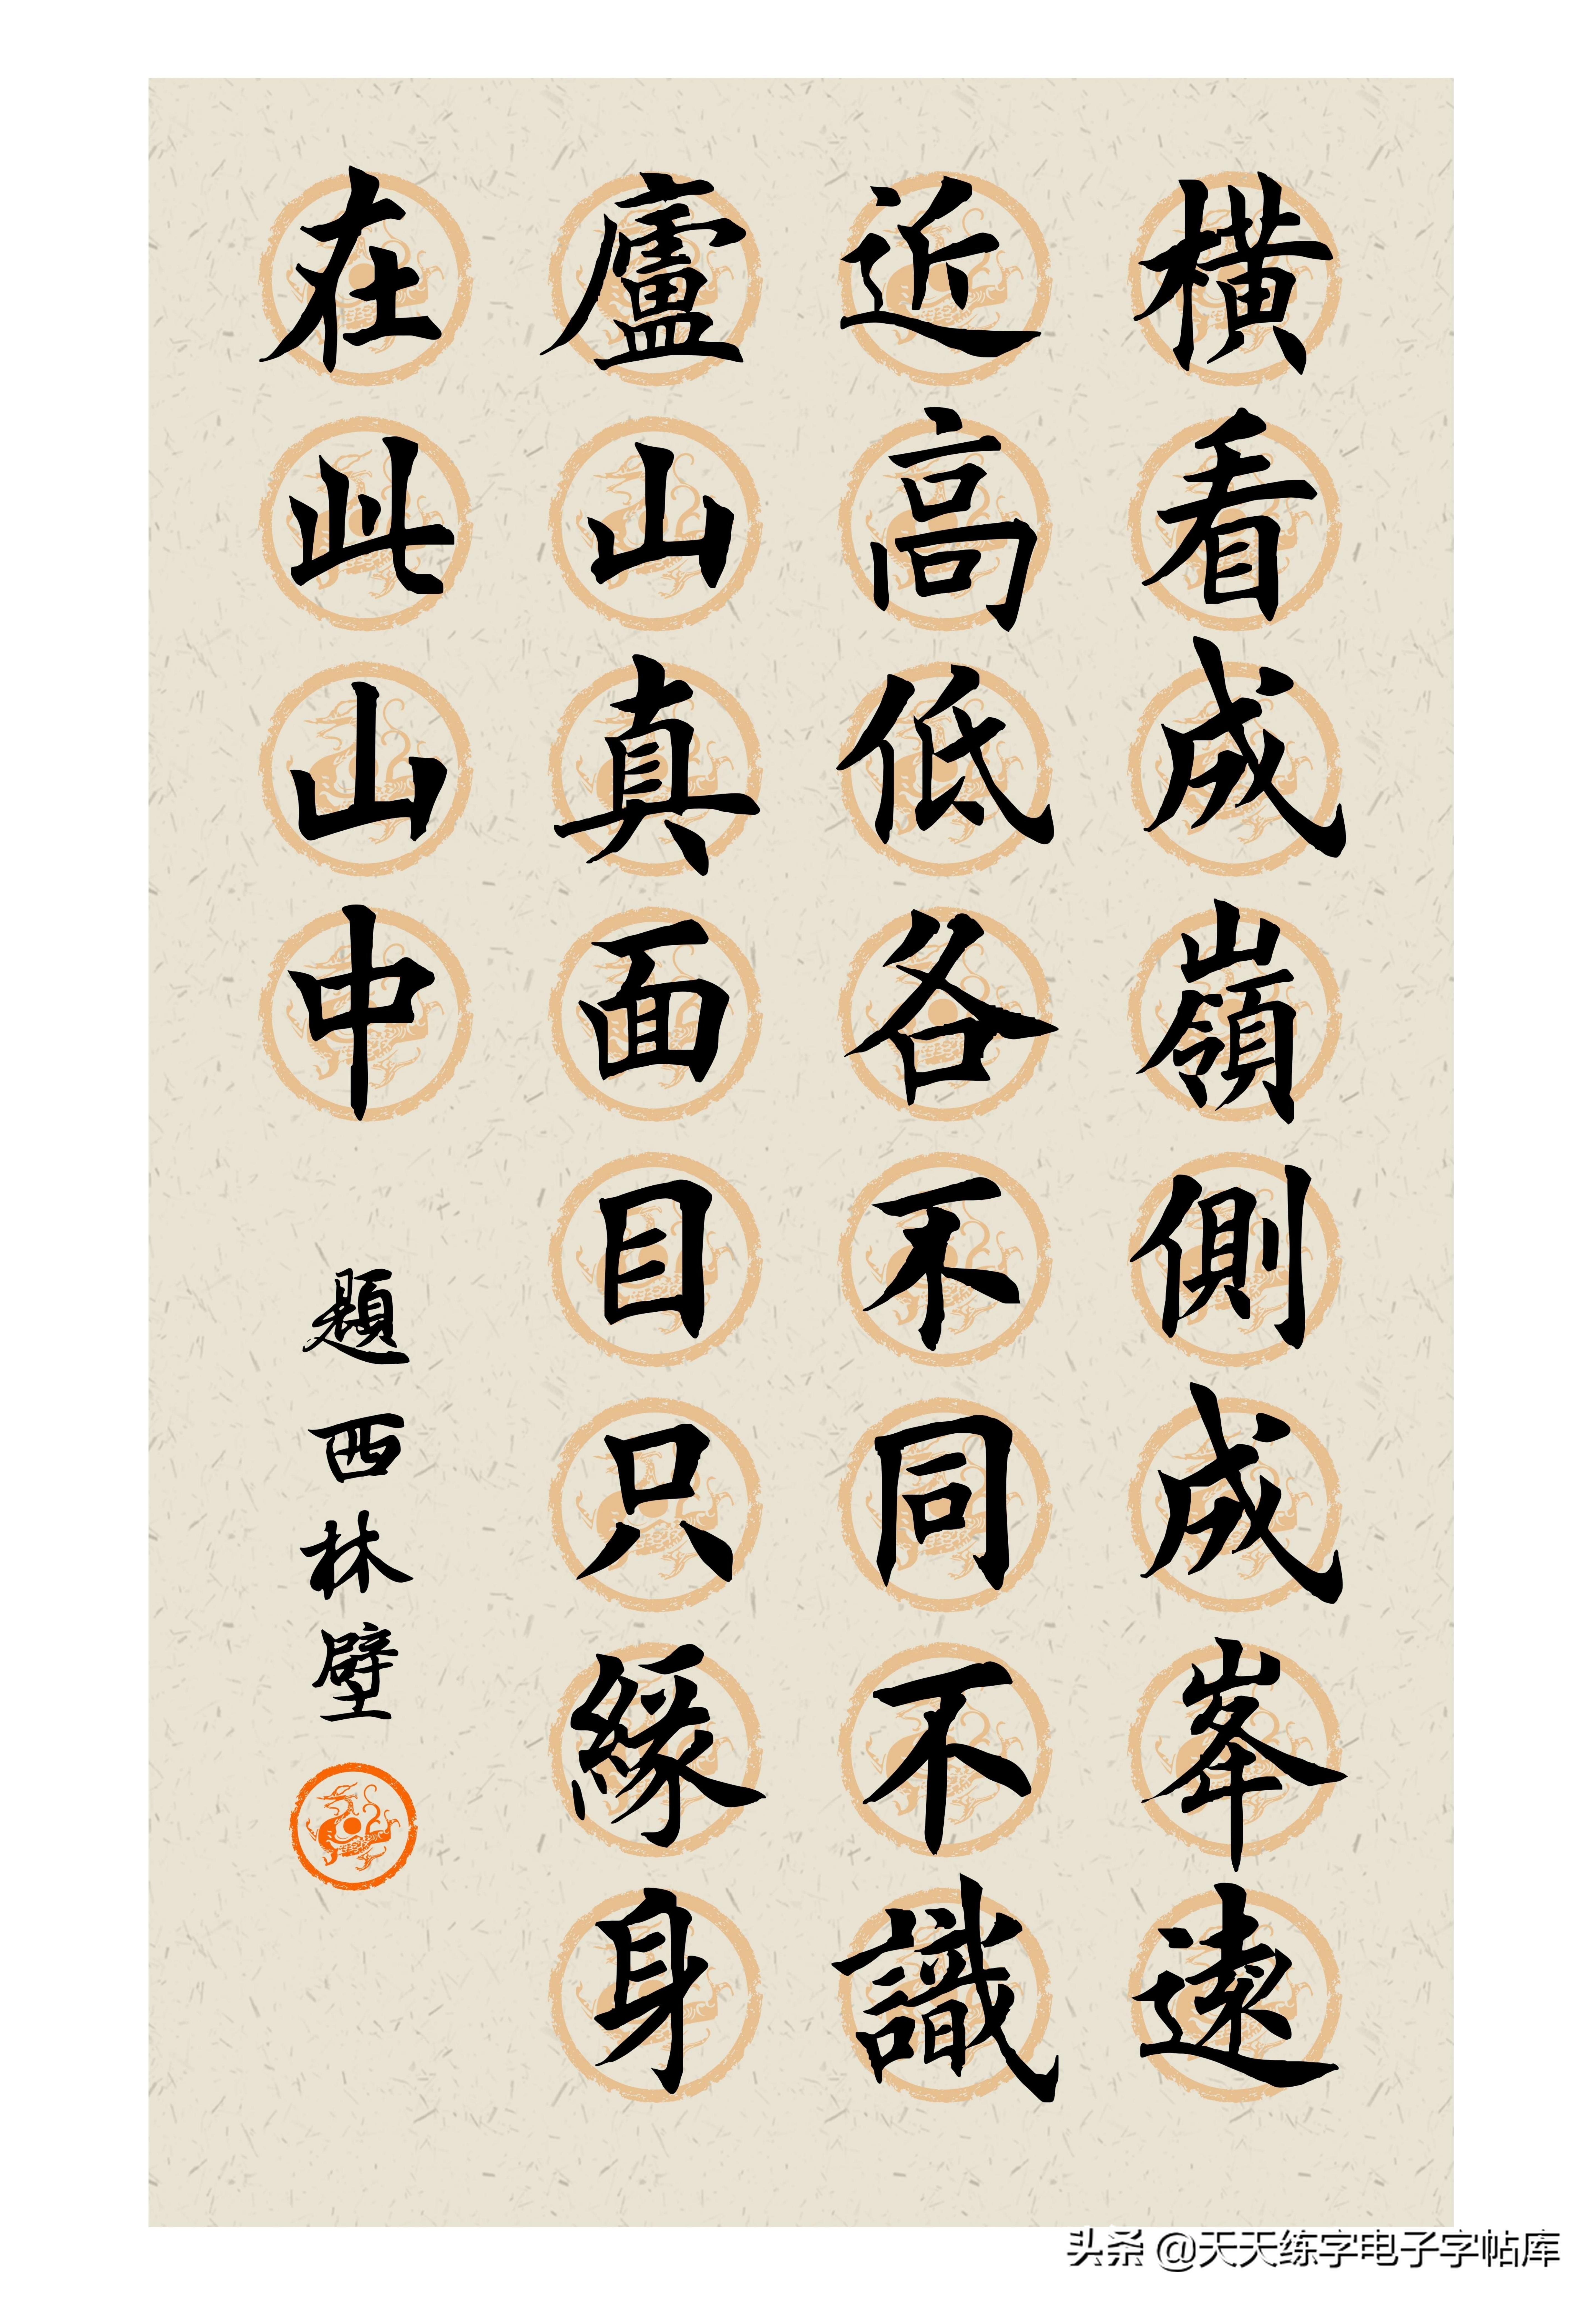 橫看成嶺側成峯遠
近高低各不同不識
廬山真面目只緣身
在此山中
題西林壁
头条 @天天练字电子字帖库